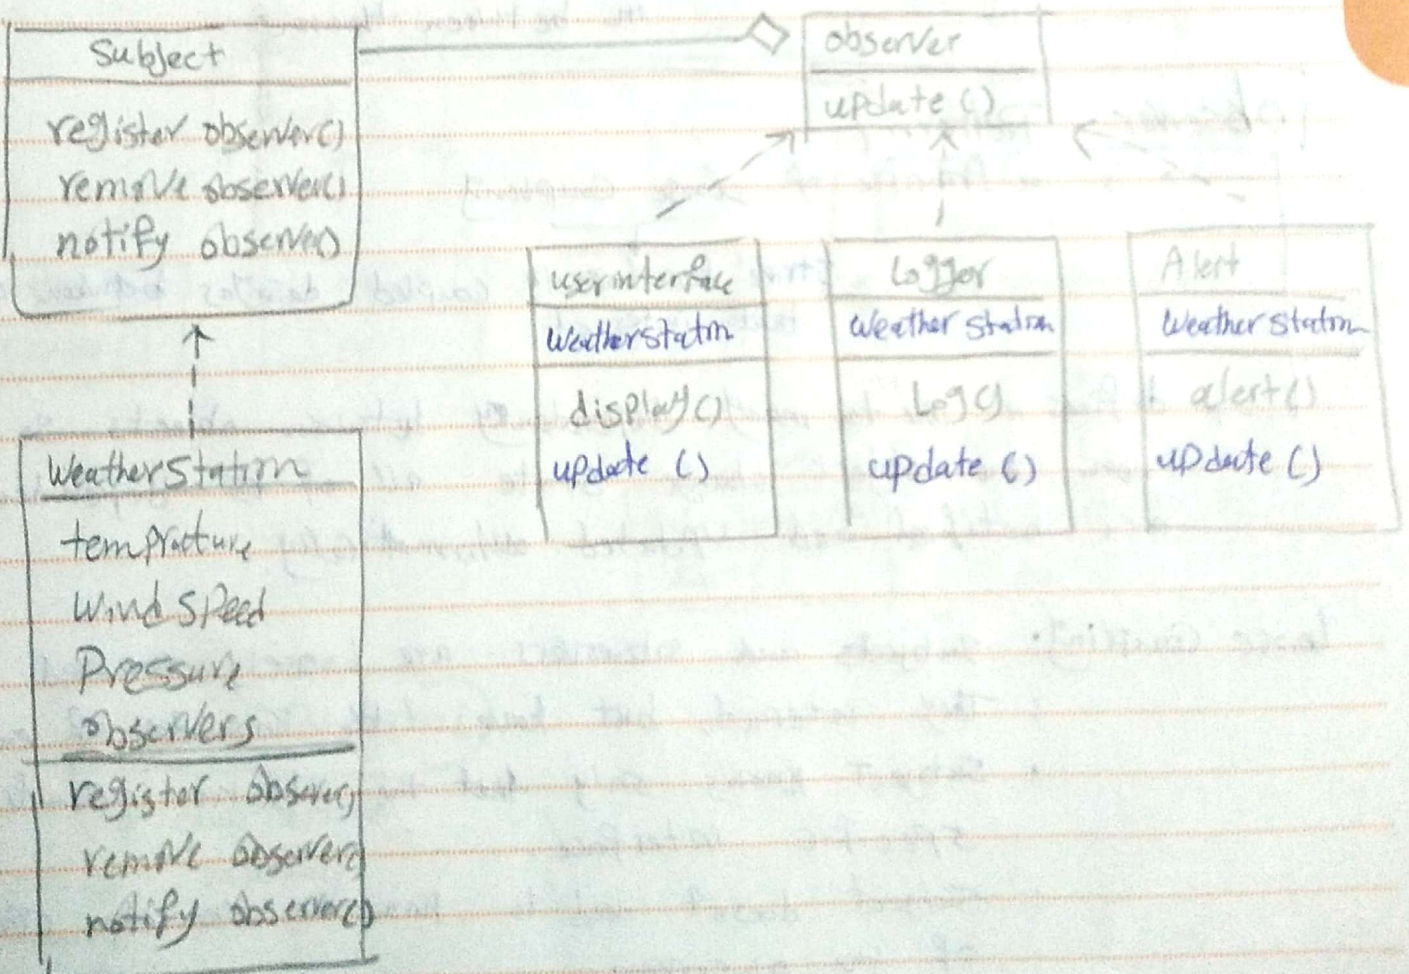 Subject
register observer()
remove observer()
notify observer()
observer
update ()
userinterface
Weatherstation
display()
update ()
Logger
Weather station
Log()
update ()
Alert
Weather station
alert()
update ()
WeatherStation
temprature
Wind Speed
Pressure
observers
register observer()
remove observer()
notify observer()